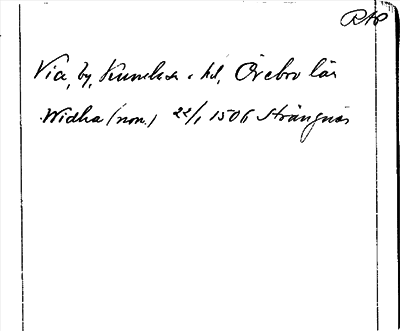 RAP
Via, by, Kumla s: o hd, Örebro län
Widha (non.) 22/1 1506 Strängnäs